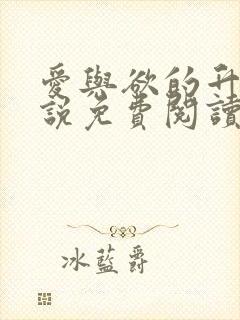 愛與欲的升
說免費閱讀
冰藍爵